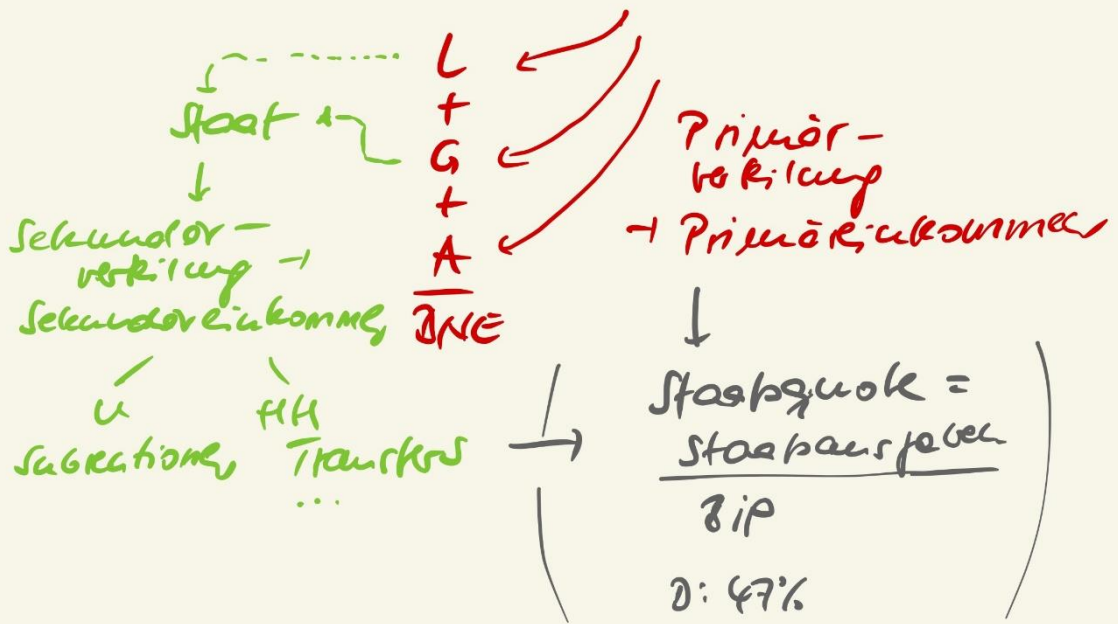 L
+
G
+
A
BNE
Staat
Sekundär-
verteilung →
Sekundäreinkommen
U
HH
Subventionen
Transfers
...
Primär-
verteilung
→ Primäreinkommen
Staatsquote =
Staatsausgaben
BIP
D: 47%